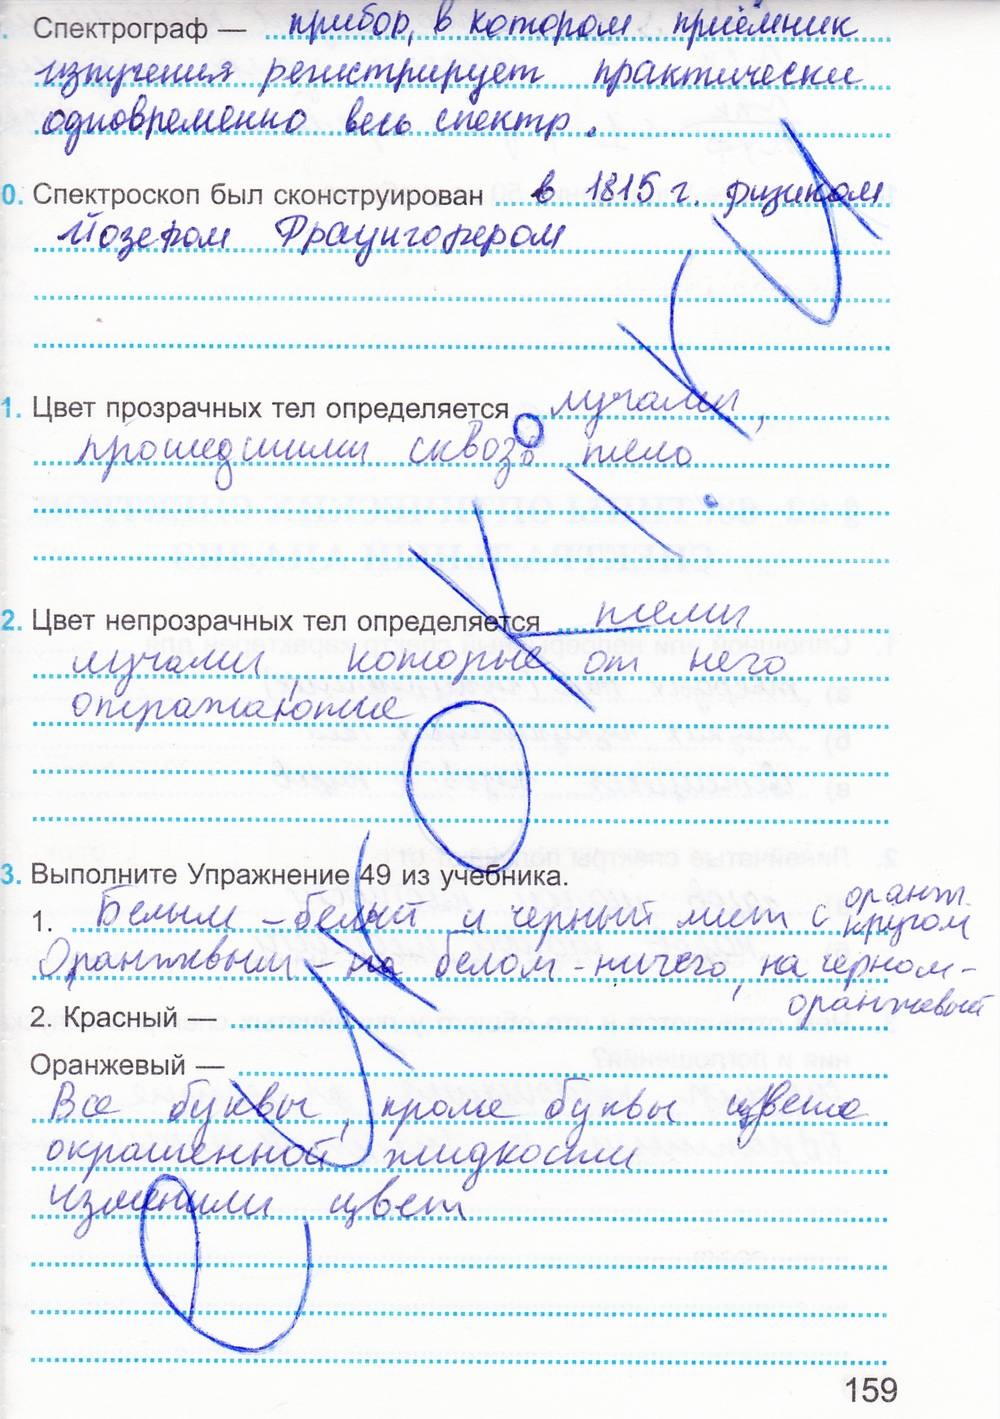 . Спектрограф — прибор, в котором приёмник
излучения регистрирует практически
одновременно весь спектр.
0. Спектроскоп был сконструирован в 1815 г. физиком
Йозефом Фраунгофером
1. Цвет прозрачных тел определяется лучами,
прошедшими сквозь тело
2. Цвет непрозрачных тел определяется теми
лучами, которые от него
отражаются
3. Выполните Упражнение 49 из учебника.
1. Белым - белый и черный лист с оранж.
кругом
Оранжвым - на белом - ничего, на черном -
оранжевый
2. Красный —
Оранжевый —
Все буквы, кроме буквы цвета
окрашенной жидкости
изменили цвет
159